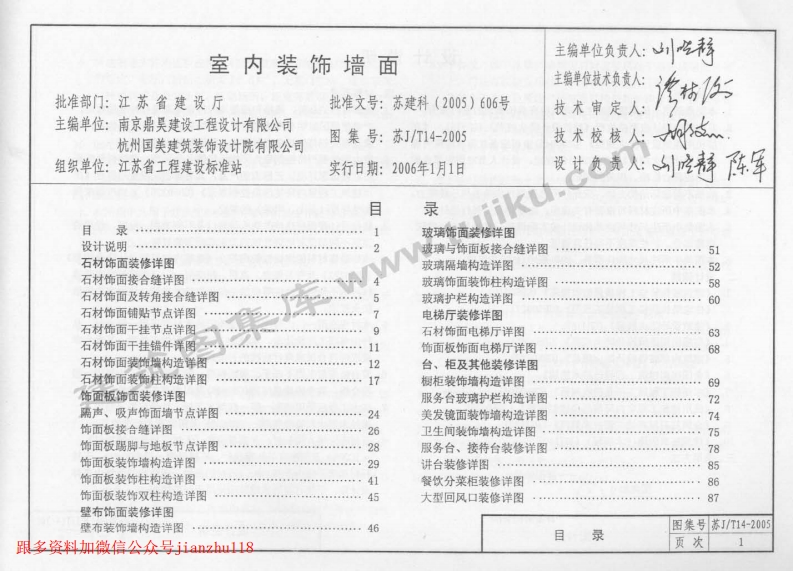 室内装饰墙面
批准部门：江苏省建设厅
批准文号：苏建科（2005）606号
主编单位：南京鼎昊建设工程设计有限公司
杭州国美建筑装饰设计院有限公司
图集号：苏J/T14-2005
组织单位：江苏省工程建设标准站
实行日期：2006年1月1日
主编单位负责人：
主编单位技术负责人：
技术审定人：
技术校核人：
设计负责人：
目 录
目 录 1
设计说明 2
石材饰面装修详图
石材饰面接合缝详图 4
石材饰面及转角接合缝详图 5
石材饰面铺贴节点详图 7
石材饰面干挂节点详图 9
石材饰面干挂锚件详图 11
石材饰面装饰墙构造详图 12
石材饰面装饰柱构造详图 17
饰面板饰面装修详图
隔声、吸声饰面墙节点详图 24
饰面板接合缝详图 26
饰面板踢脚与地板节点详图 28
饰面板装饰墙构造详图 29
饰面板装饰柱构造详图 41
饰面板装饰双柱构造详图 45
壁布饰面装修详图
壁布装饰墙构造详图 46
玻璃饰面装修详图
玻璃与饰面板接合缝详图 51
玻璃隔墙构造详图 52
玻璃饰面装饰柱构造详图 58
玻璃护栏构造详图 60
电梯厅装修详图
石材饰面电梯厅详图 63
饰面板饰面电梯厅详图 68
台、柜及其他装修详图
橱柜装饰墙构造详图 69
服务台玻璃护栏构造详图 72
美发镜面装饰墙构造详图 74
卫生间装饰墙构造详图 75
服务台、接待台装修详图 78
讲台装修详图 85
餐饮分菜柜装修详图 86
大型回风口装修详图 87
目 录
图集号 苏J/T14-2005
页次 1
建筑图集库 www.tujiku.com
跟多资料加微信公众号jianzhu118